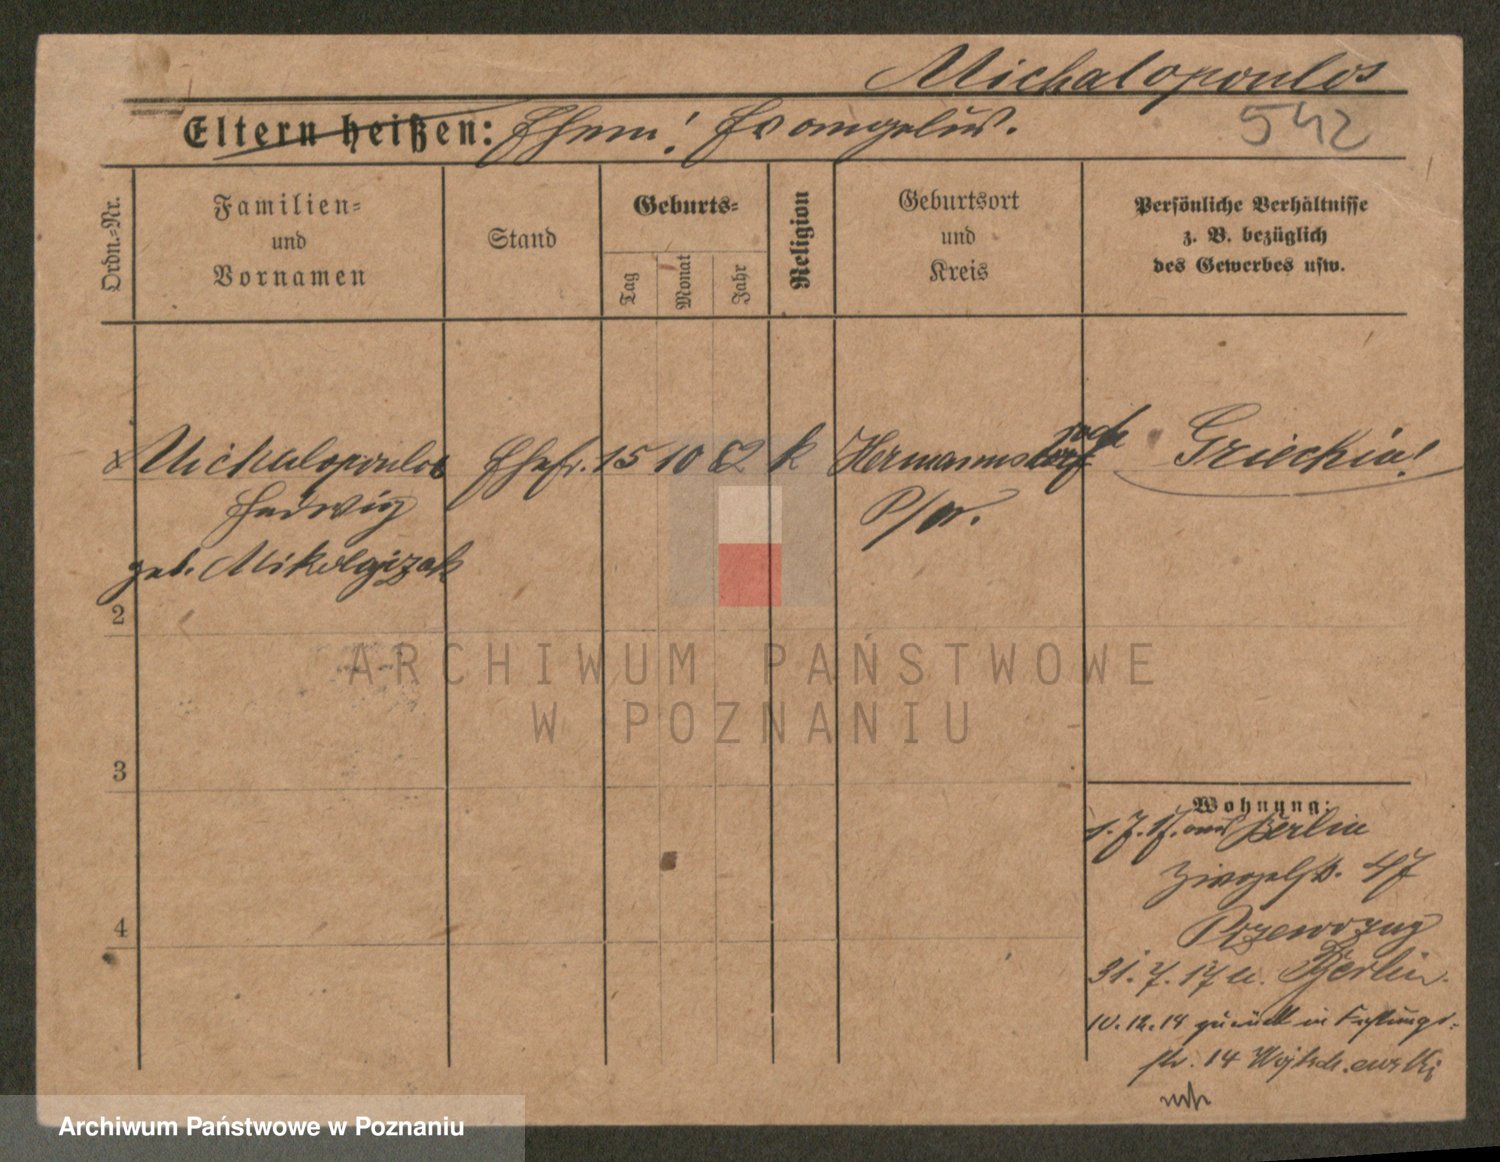 Michalopoulos
Eltern heißen: Ehem: Evangelius.
542
Ordn.=Nr.
Familien=
und
Vornamen
Stand
Geburts=
Tag
Monat
Jahr
Religion
Geburtsort
und
Kreis
Persönliche Verhältnisse
z. B. bezüglich
des Gewerbes usw.
Michalopoulos Ehefr. 15 10 82 k Hermannsdorf Griechin!
Hedwig P/W.
geb. Mikolajczak
2
3
4
Wohnung:
Berlin
47
31. 7. 17 n. Berlin.
10.12.19 zurück in Festungs-
str. 14
ARCHIWUM PAŃSTWOWE
W POZNANIU
Archiwum Państwowe w Poznaniu